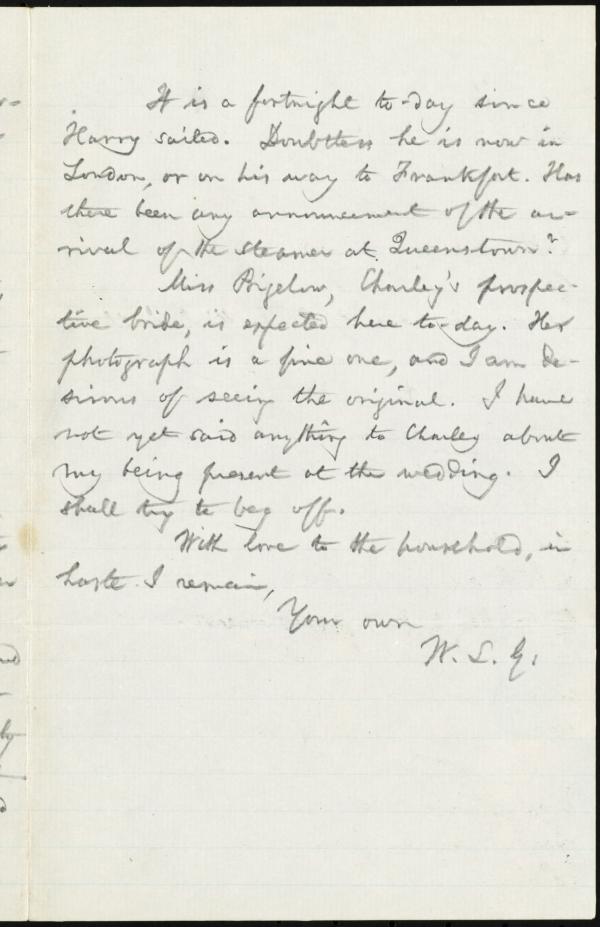 It is a fortnight to-day since
Harry sailed. Doubtless he is now in
London, or on his way to Frankfort. Has
there been any announcement of the ar-
rival of the steamer at Queenstown?
Miss Bigelow, Charley's prospec-
tive bride, is expected here to-day. Her
photograph is a fine one, and I am de-
sirous of seeing the original. I have
not yet said anything to Charley about
my being present at the wedding. I
shall try to beg off.
With love to the household, in
haste I remain,
Your own
W. L. G.